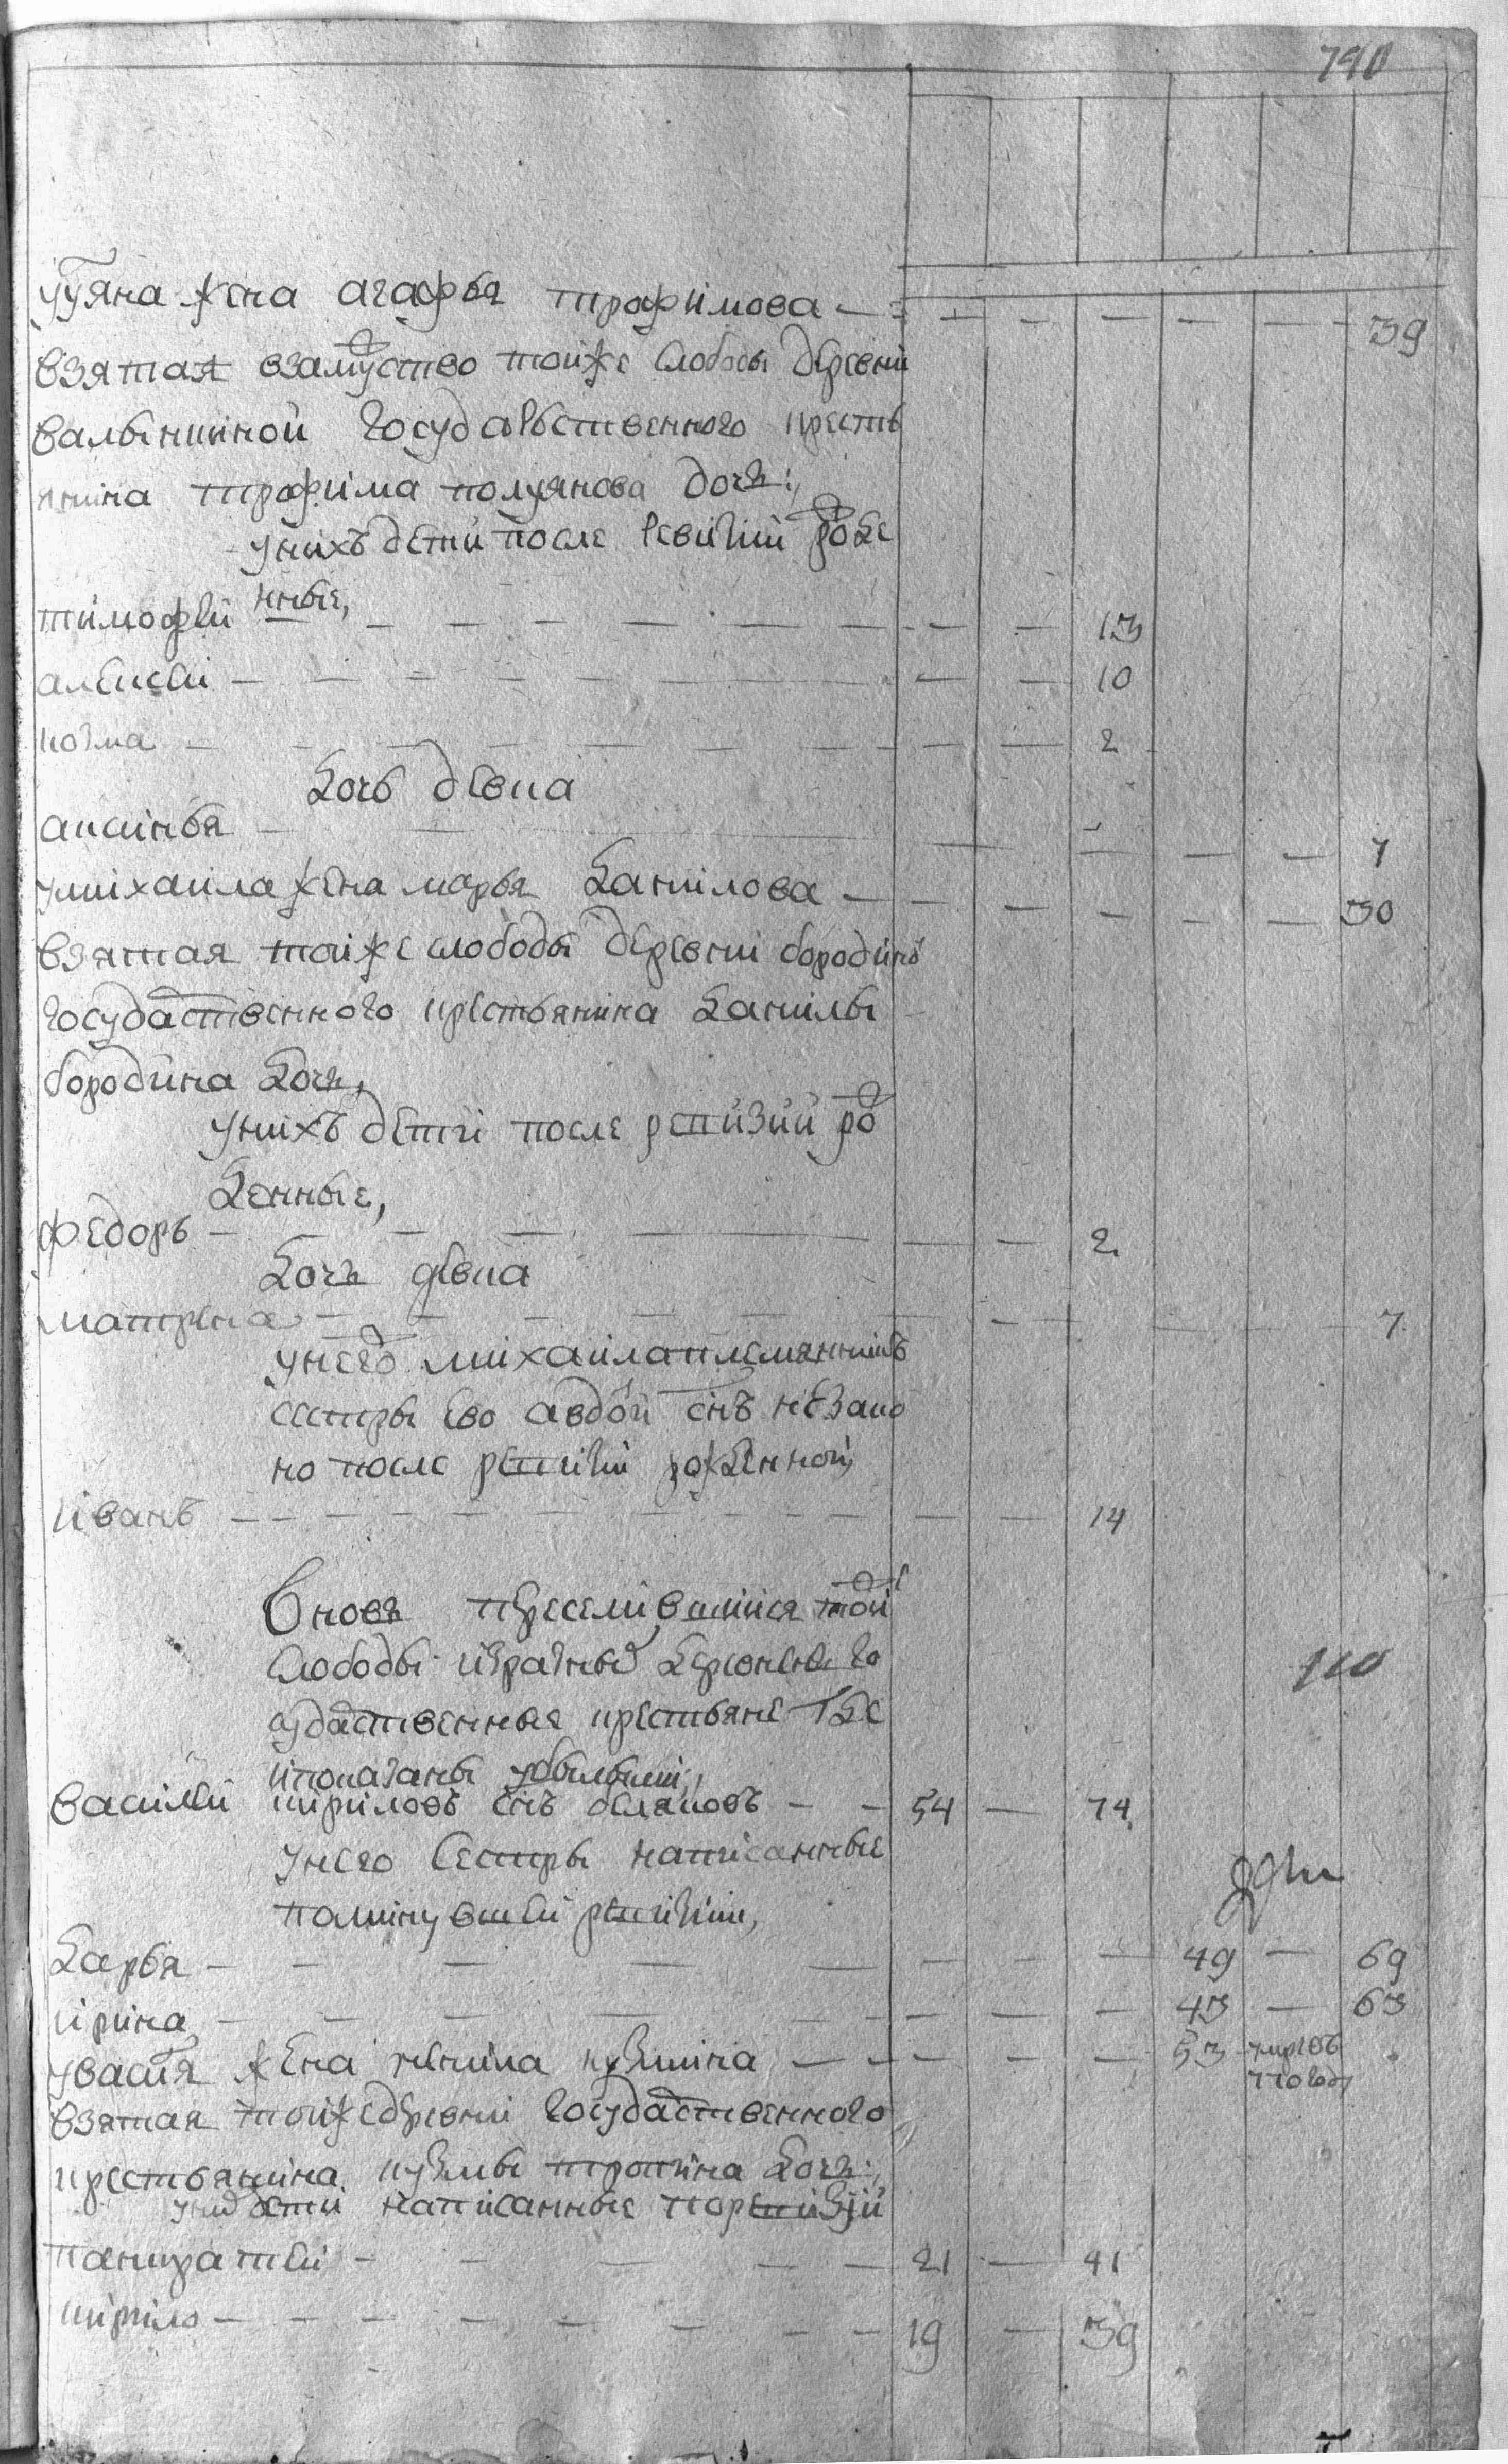 790
ууяна жена агафья трофимова — 39
взятая взамуство тойже слободы деревни
валынщиной государственного кресть
янина трофима полуянова дочь
уних детей после ревизии роже
нные,
тимофей — 13
алексей — 10
козма — 2
дочь девка
аксинья — 7
умихаила жена марья данилова — 30
взятая тойже слободы деревни бородиной
государственного крестьянина данилы
бородина дочь,
унихъ дети после ревизии ро
жденные,
федоръ — 2
дочь девка
матрена — 7
унего михаила племянникъ
сестры ево авдотьи снъ незако
но после ревизии рожденной
иванъ — 14
Вновь переселившиися той
слободы израз деревень го
сударственные крестьяне где
ипоказаны убылыми,
василей кириловъ снъ беляковъ — 54 — 74
110
унего сестры написанные
поминувшей ревизии,
дарья — 49 — 69
ирина — 43 — 63
увасиля жена кузмина — 53 умре въ
году
взятая тойже деревни государственного
крестьянина кузмы тропина дочь
уних дети написанные поревизии
панкратей — 21 — 41
кирило — 19 — 39